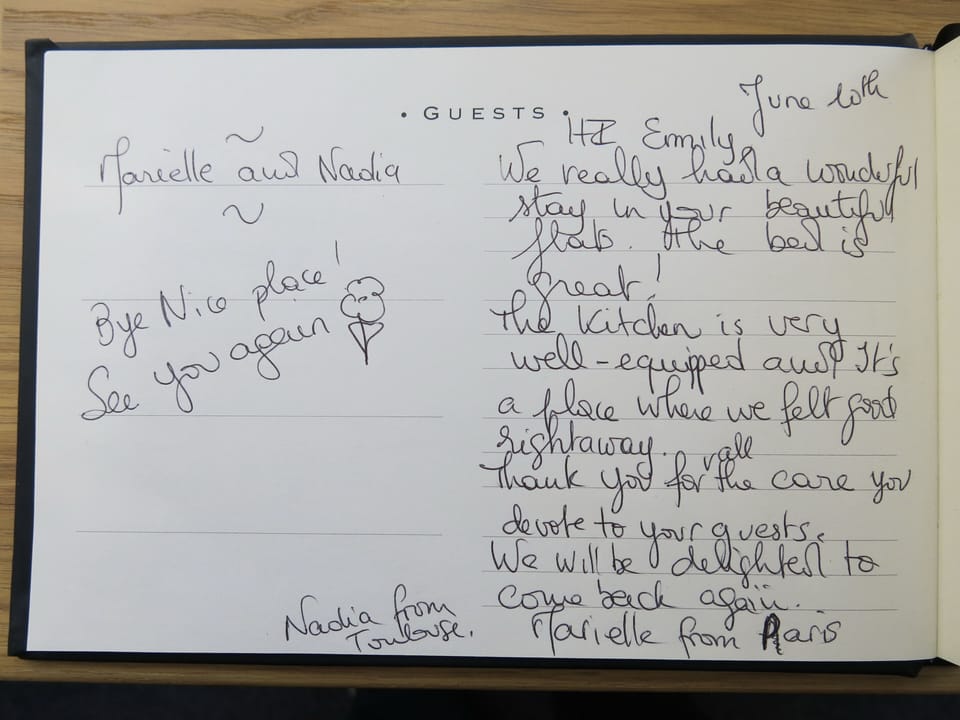 • GUESTS •
Marielle and Nadia
Bye Nice place!
See you again
June 10th
HI Emmily,
We really had a wonderful
stay in your beautiful
flat. The bed is
great!
The kitchen is very
well-equipped and It's
a place where we felt good
rightaway.
Thank you for all the care you
devote to your guests.
We will be delighted to
come back again.
Nadia from
Toulouse.
Marielle from Paris